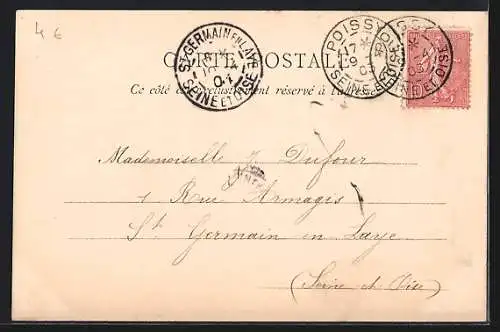 4 €
CARTE POSTALE
Ce côté est exclusivement réservé à l'adresse
ST GERMAIN EN LAYE
04
SEINE ET OISE
POISSY
17 *
19
SEINE ET OISE
POISSY
SEINE ET OISE
Mademoiselle J. Dufour
1 Rue Armagis
St Germain en Laye
(Seine et Oise)